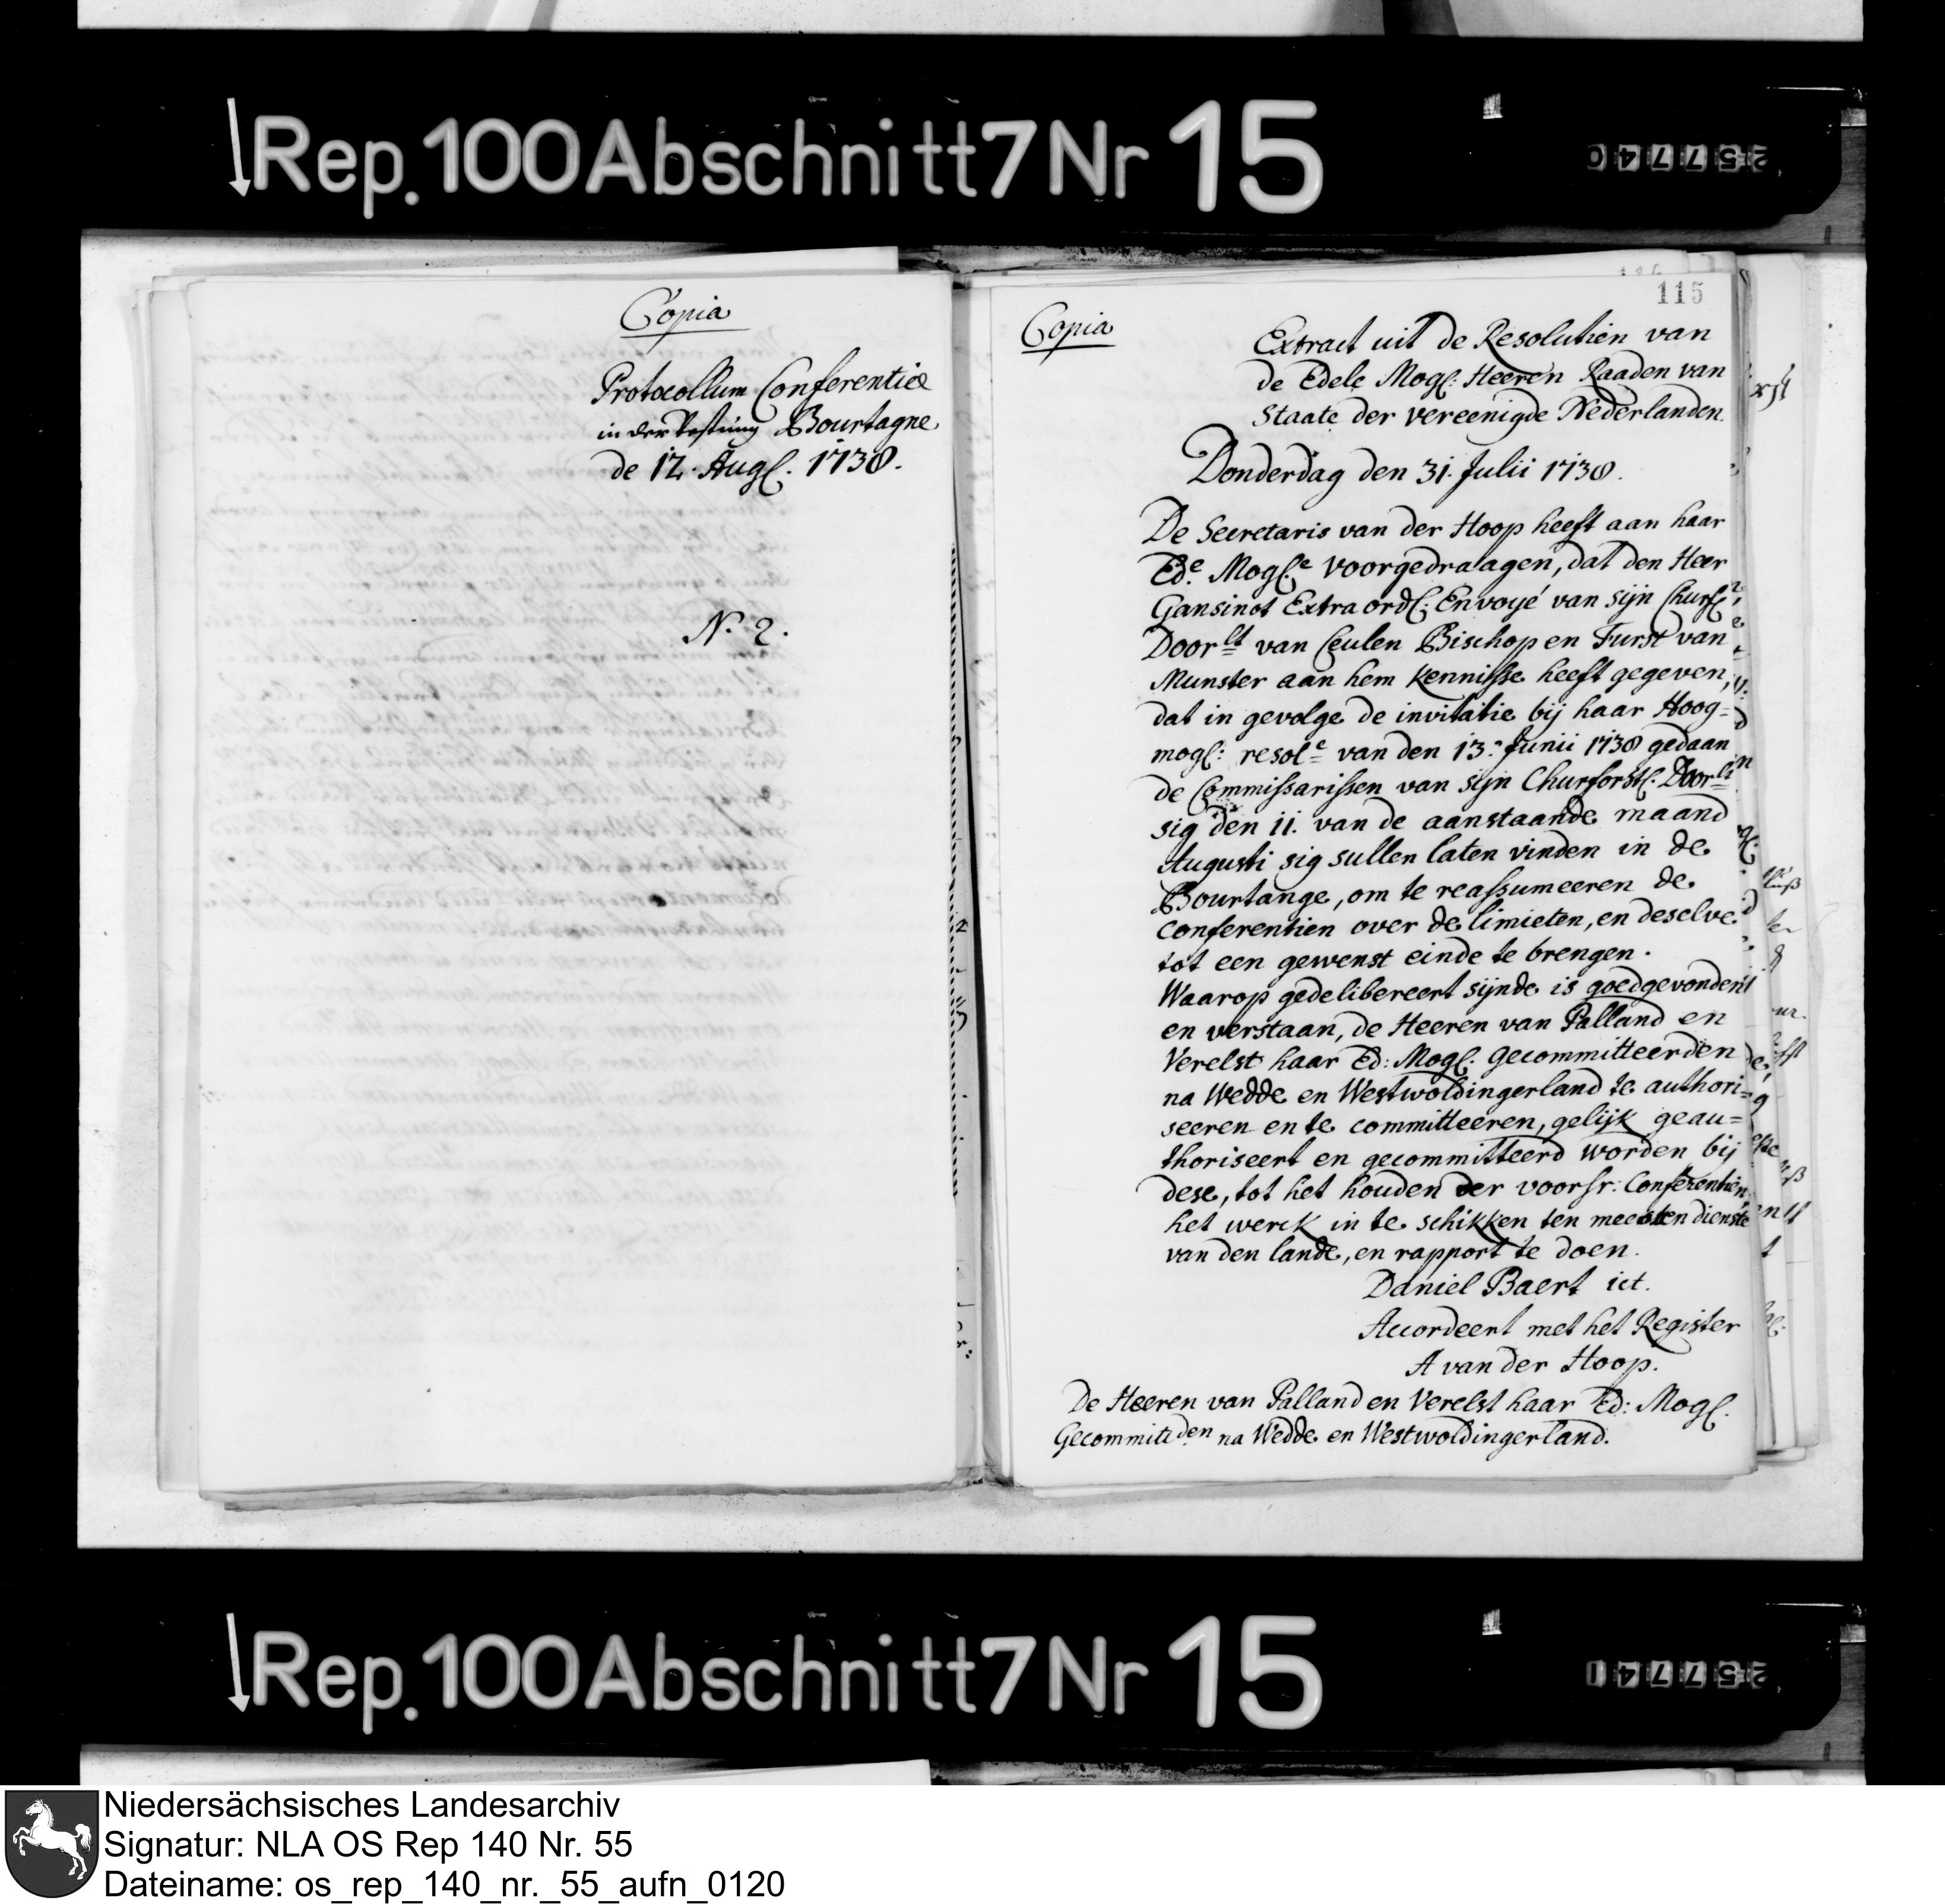 Rep. 100 Abschnitt 7 Nr 15
257740
Copia
Protocollum Conferentiæ
in der Vestung Bourtagne
de 12. Augl. 1738.
N. 2.
115
Copia
Extract uit de Resolutien van
de Edele Mogl: Heeren Raaden van
Staate der vereenigde Nederlanden.
Donderdag den 31. Julii 1738.
De Secretaris van der Hoop heeft aan haar
Ed.e Mogl.e voorgedraagen, dat den Heer
Gansinot Extraordl: Envoyé van sijn Churfl.
Doorlt van Ceulen Bischop en Furst van
Munster aan hem kennisse heeft gegeven,
dat in gevolge de invitatie bij haar Hoog=
mogl: resole van den 13. Junii 1738 gedaan
de Commissarissen van sijn Churforstl. Doorlt
sig den 11. van de aanstaande maand
Augusti sig sullen laten vinden in de
Bourtange, om te reassumeeren de
Conferentien over de limieten, en deselve
tot een gewenst einde te brengen.
Waarop gedelibereert sijnde is goedgevonden
en verstaan, de Heeren van Palland en
Verelst haar Ed: Mogl. gecommitteerden
na Wedde en Westwoldingerland te authori=
seeren en te committeeren, gelijk geau=
thoriseert en gecommitteerd worden bij
dese, tot het houden der voorsr: Conferentien,
het werck in te schikken ten meesten dienste
van den lande, en rapport te doen.
Daniel Baert ict.
Accordeert met het Register
A van der Hoop.
De Heeren van Palland en Verelst haar Ed: Mogl.
Gecommittden na Wedde en Westwoldingerland.
Rep. 100 Abschnitt 7 Nr 15
257741
Niedersächsisches Landesarchiv
Signatur: NLA OS Rep 140 Nr. 55
Dateiname: os_rep_140_nr._55_aufn_0120